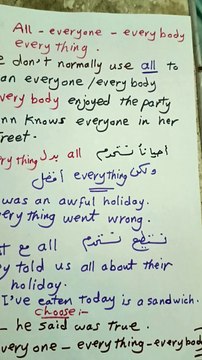 All - everyone - everybody
everything.
e don't normally use all to
an everyone / every body
very body enjoyed the party
nn knows everyone in her
treet.
أحياناً نستخدم all بدل rything
ولكن everything أفضل
was an awful holiday.
ery thing went wrong.
نستطيع نستخدم all مع
y told us all about their
holiday.
I've eaten today is a sandwich.
choose:-
he said was true.
very one - everything - everybody